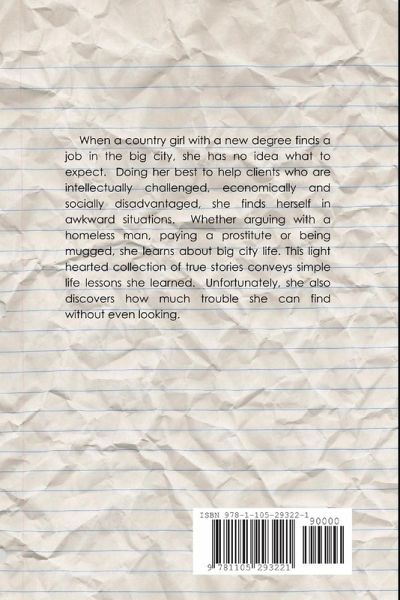 When a country girl with a new degree finds a
job in the big city, she has no idea what to
expect. Doing her best to help clients who are
intellectually challenged, economically and
socially disadvantaged, she finds herself in
awkward situations. Whether arguing with a
homeless man, paying a prostitute or being
mugged, she learns about big city life. This light
hearted collection of true stories conveys simple
life lessons she learned. Unfortunately, she also
discovers how much trouble she can find
without even looking.
ISBN 978-1-105-29322-1
90000
9 781105 293221